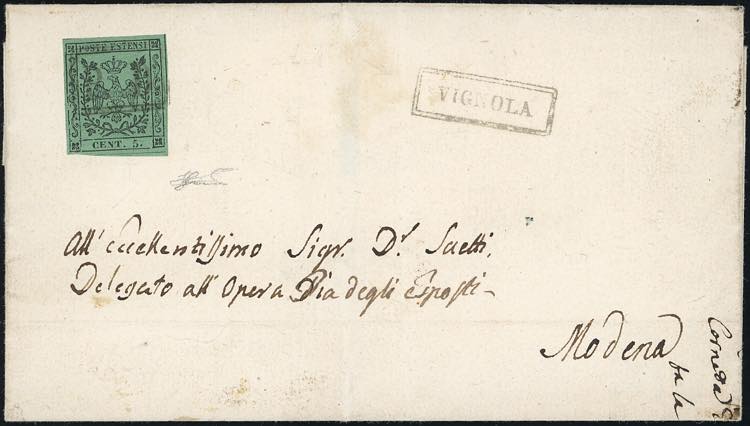 POSTE ESTENSI
CENT. 5.
VIGNOLA
All'eccellentissimo Sigr. Dr. Saetti.
Delegato all'Opera Pia degli Esposti-
Modena
fa la